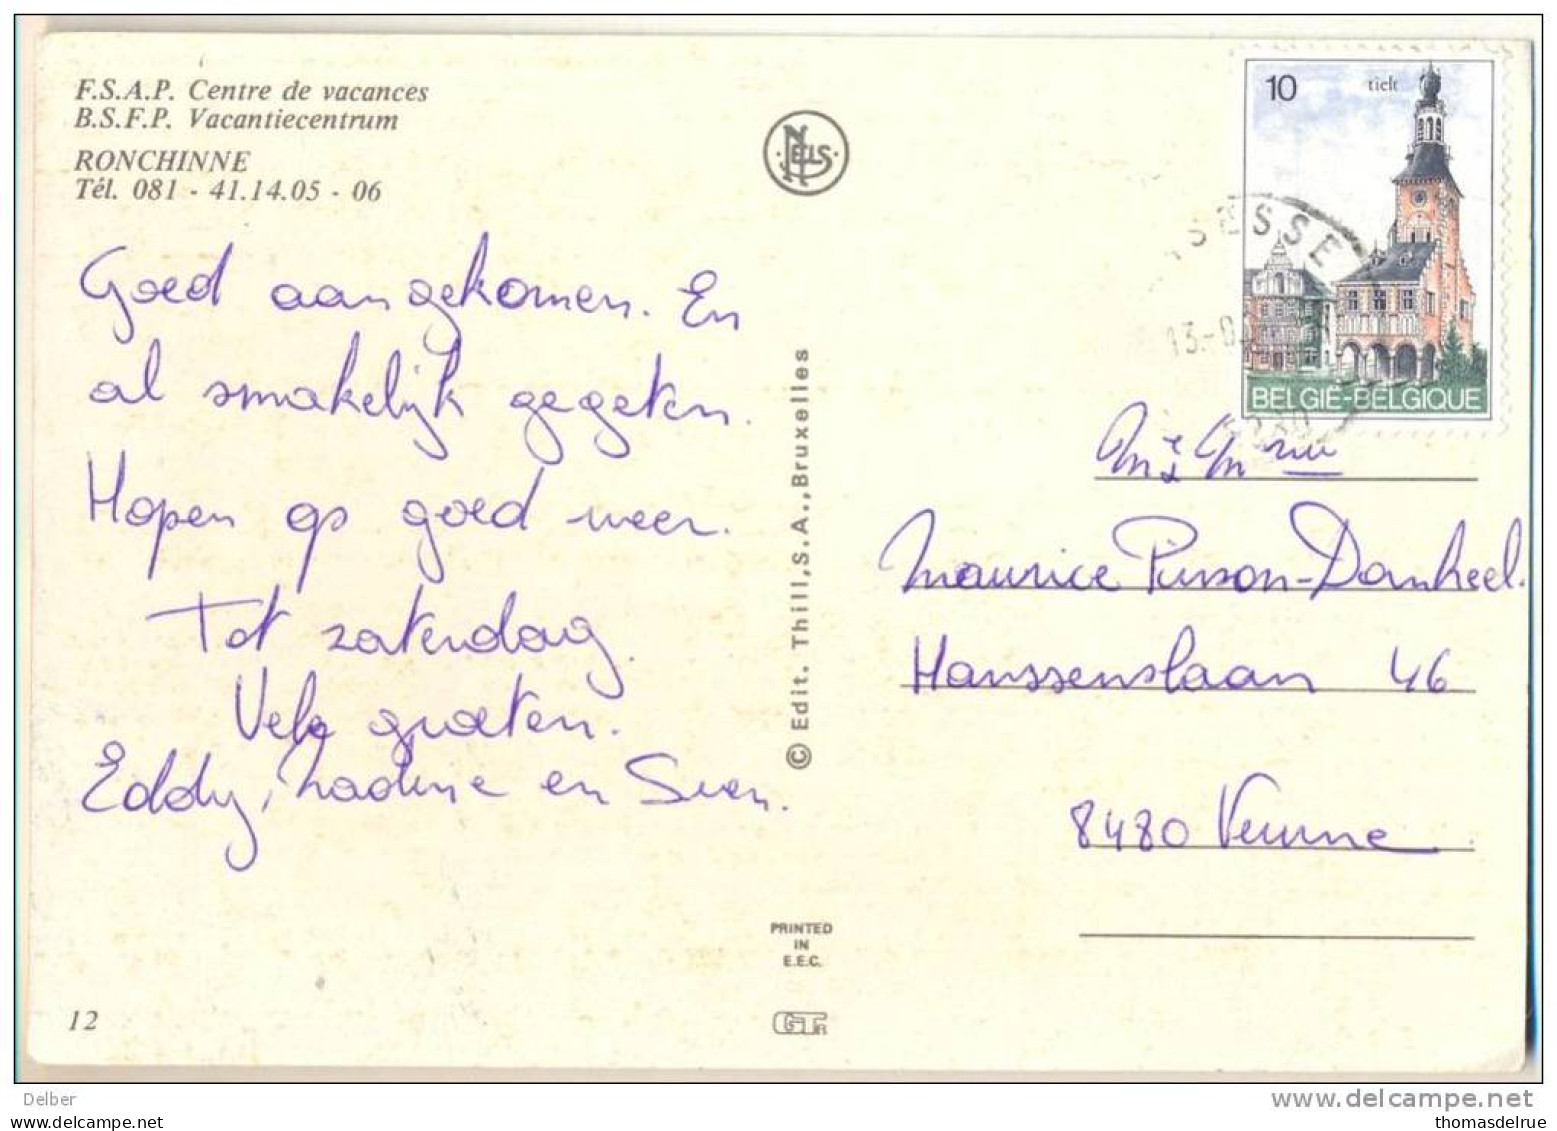 F.S.A.P. Centre de vacances
B.S.F.P. Vacantiecentrum
RONCHINNE
Tél. 081 - 41.14.05 - 06
NELS
10
tielt
BELGIE-BELGIQUE
SESSE
13.-0
Goed aangekomen. En
al smakelijk gegeten.
Hopen op goed weer.
Tot zaterdag.
Vele groeten.
Eddy, Nadine en Sven.
© Edit. Thill, S.A., Bruxelles
Mr & Mme
Maurice Pinson-Dankeel.
Hanssenslaan 46
8480 Veurne
PRINTED
IN
E.E.C.
12
Delber
www.delcampe.net
thomasdelrue